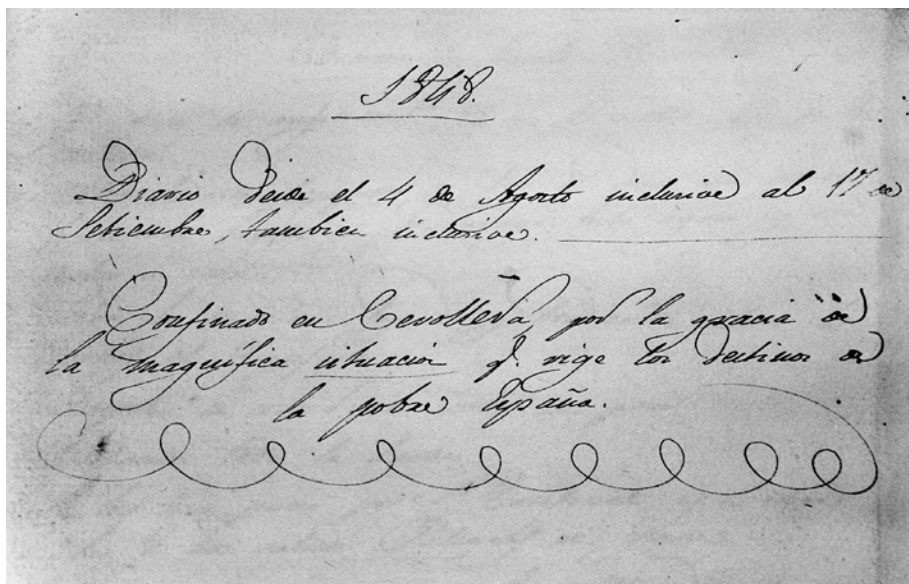 1848.
Diario desde el 4 de Agosto inclusive al 17 de
Setiembre, tambien inclusive.
Confinado en Cevolleda, por la gracia de
la magnífica situacion q. rige los destinos de
la pobre España.